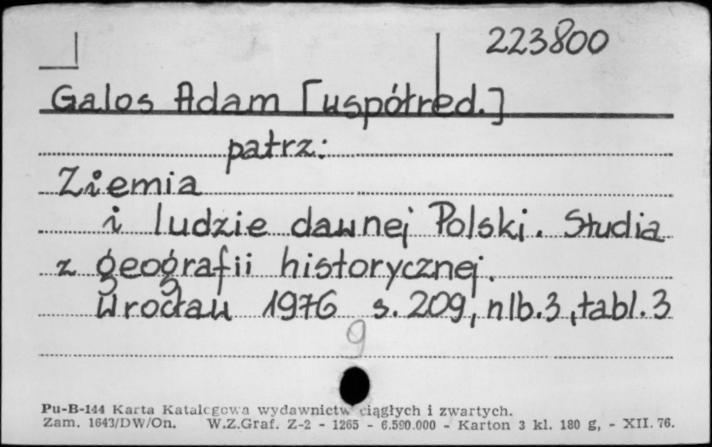 223800
Galos Adam [współred.]
patrz:
Ziemia
i ludzie dawnej Polski. Studia
z geografii historycznej.
Wrocław 1976 s. 209, nlb. 3, tabl. 3
9
Pu-B-144 Karta Katalogowa wydawnictw ciągłych i zwartych.
Zam. 1643/DW/On. W.Z.Graf. Z-2 - 1265 - 6.590.000 - Karton 3 kl. 180 g, - XII. 76.